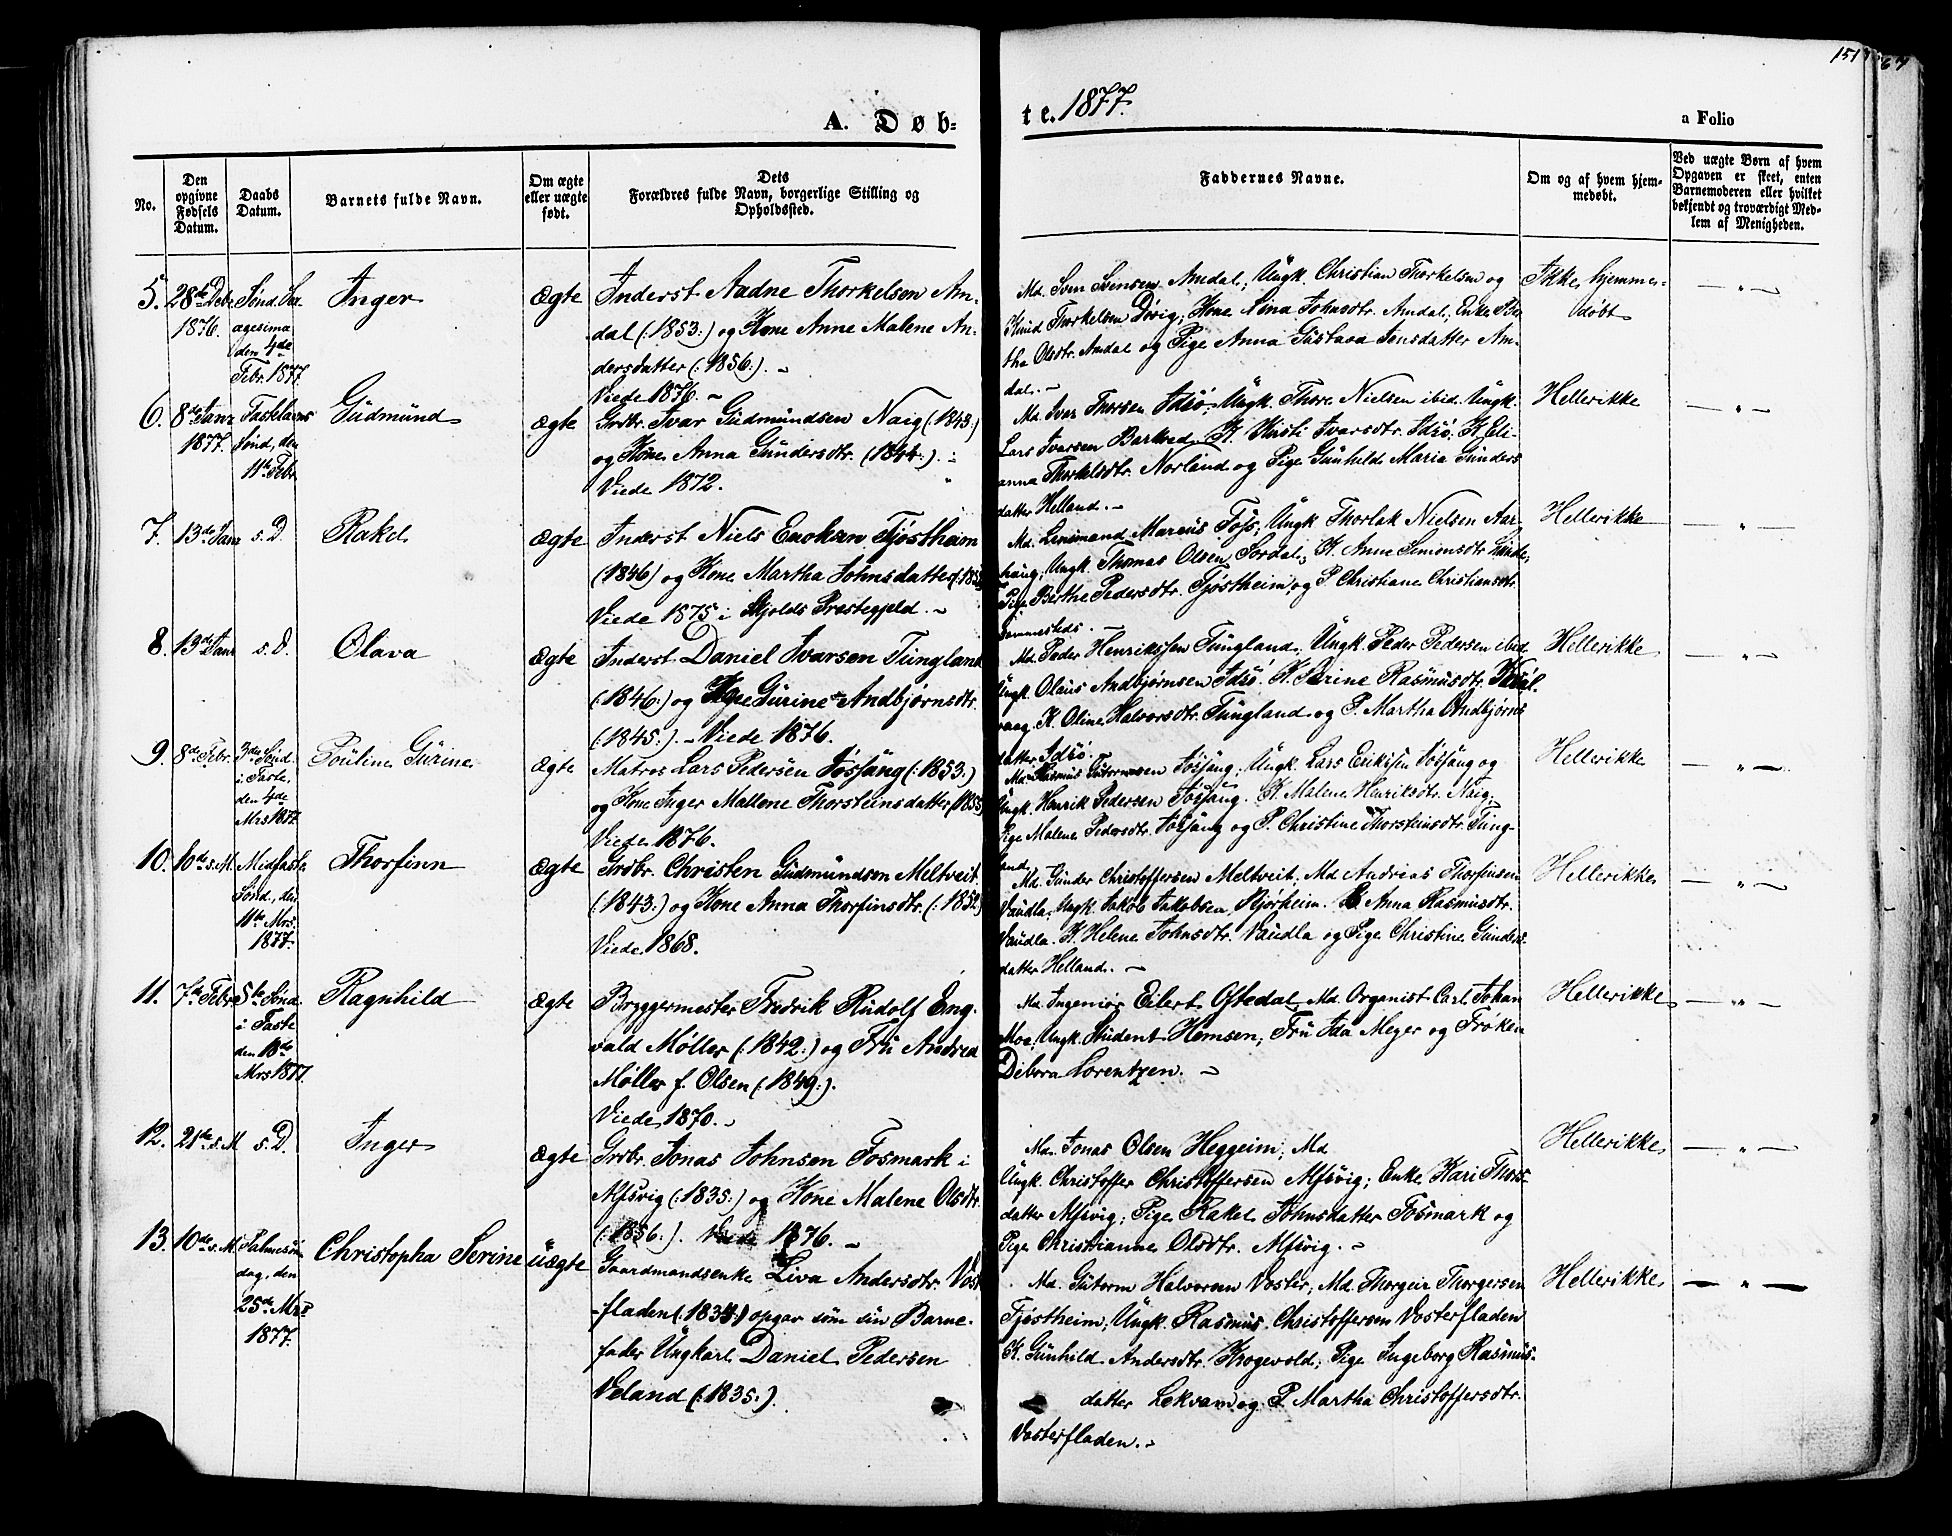 151
67
A. Døb-
te. 1877.
a Folio
No.
Den opgivne Fødsels Datum.
Daabs Datum.
Barnets fulde Navn.
Om ægte eller uægte født.
Dets Forældres fulde Navn, borgerlige Stilling og Opholdssted.
Faddernes Navne.
Om og af hvem hjemmedøbt.
Ved uægte Børn af hvem Opgaven er skeet, enten Barnemoderen eller hvilket bekjendt og troværdigt Medlem af Menigheden.
5.
28de Debr
1876.
Sønd. Sex
agesima
den 4de
Febr. 1877.
Inger
Ægte
Inderst Aadne Thorkelsen Am-
dal (:1853:) og Kone Anne Malene An-
dersdatter (:1856:). -
Viede 1876. -
Md. Sven Svensen Amdal; Ungk. Christian Thorkelsen og
Knud Thorkelsen Dørig; Kone Nina Johnsdtr. Amdal; Enke Ber-
tha Olsdtr. Amdal og Pige Anna Gustava Jonsdatter Am-
dal. -
Ikke hjemme-
døbt
— " —
6.
8de Janr
1877.
Fastelavns
Sønd., den
11te Febr.
Gudmund
Ægte
Grdbr. Ivar Gudmundsen Naig (1843:)
og Kone Anna Gundersdtr. (1844:). -
Viede 1872.
Md. Iver Thorsen Idsø; Ungk. Thore Nielsen ibid. Ungk.
Lars Ivarsen Barkved. K. Kirsti Ivarsdtr. Idsø; K. Eli-
anna Thorkelsdtr. Norland og Pige Gunhild Maria Gunders
datter Helland. -
Hellerikke
— " —
7.
13de Janr
s. D.
Rakel
Ægte
Inderst Niels Enoksen Tjøstheim
(1846) og Kone Martha Johnsdatter
Viede 1875 i Skjolds Præstegjeld. -
Md. Lensmand Marcus Fojs; Ungk Thorlak Nielsen Aar-
haug; Ungk. Thomas Olsen Sordal; K. Anne Simonsdtr
Pige Berthe Pedersdtr. Tjøstheim og P. Christiane Christiansdtr.
Sammesteds. -
Hellerikke
— " —
8.
19de Janr
s. D.
Olava
Ægte
Inderst Daniel Ivarsen Tungland
(:1846:) og Kone Gurine Andbjørnsdtr.
(:1845:). - Viede 1876.
Md. Peder Henriksen Tungland; Ungk. Peder Pedersen ibid
Ungk. Olaus Andbjørnsen Idsø. K. Serine Rasmusdtr.
vaag. K. Oline Halvorsdtr. Tungland og P. Martha Andbjørns
datter Idsø.
Hellerikke
— " —
9.
8de Febr.
3die Sønd.
i Faste,
den 4de
Mrs 1877.
Pouline Gurine
Ægte
Matros Lars Pedersen Fosfang (:1853:)
og Kone Inger Mallene Thorsteinsdatter (1855)
Viede 1876.
Md. Rasmus Guttormsen Fosfang; Ungk. Lars Eriksen Fosfang og
Ungk. Henrik Pedersen Fosfang. K. Malene Henriksdtr. Naig;
Pige Malene Pedersdtr. Fosfang og P. Christine Thorsteinsdtr. Tung-
land.
Hellerikke
— " —
10.
10de s. M.
Midfaste
Sønd., den
11te Mrs.
1877.
Thorfinn
Ægte
Grdbr. Christen Gudmundsen Meltveit
(:1843:) og Kone Anna Thorfinsdtr. (:1852)
Viede 1868.
Md. Gunder Christoffersen Meltveit; Md Andreas Thorfinsen
Vaudla; Ungk. Jakob Jakobsen Bjørheim. K Anna Rasmusdtr.
Vaudla. K. Helene Johnsdtr. Vaudla og Pige Christine Gunders-
datter Helland. -
Hellerikke
— " —
11.
7de Febr
5te Sønd.
i Faste
den 18de
Mrs 1877.
Ragnhild
Ægte
Bryggermester Fredrik Rudolf Eng-
vald Møller (:1842:) og Fru Andrea
Møller f. Olsen (:1849:).
Viede 1870. -
Md. Ingeniør Eilert Oftedal, Md. Organist Carl Johan
Moe; Ungk. Student Hemsen; Fru Ida Meyer og Frøken
Debora Lorentzen. -
Hellerikke
— " —
12.
21de s. M
s. D.
Inger
Ægte
Grdbr. Jonas Johnsen Fosmark i
Mfsvig (:1835:) og Kone Malene Olsdtr.
(:1856:). Viede 1876. -
Md. Jonas Olsen Heggeim; Md
Ungk. Christoffer Christoffersen Mfsvig; Enke Kari Thors-
datter Mfsvig; Pige Rakel Johnsdatter Fosmark og
Pige Christianne Olsdtr. Mfsvig. -
Hellerikke
— " —
13.
10de s. M.
Palmesøn
dag, den
25de Mrs
1877.
Christopha Serine
uægte
Gaardmandsenke Liva Andersdtr. Vost
-fladen (:1834:) opgav som sin Barne-
fader Ungkarl Daniel Pedersen
Veland (:1835:).
Md. Guttorm Halvorsen Voster; Md. Thorgeir Thorgersen
Tjøstheim; Ungk. Rasmus Christoffersen Vosterfladen
K. Gunhild Andersdtr. Krogevold; Pige Ingeborg Rasmus-
datter Lekvam og P Martha Christoffersdtr.
Vosterfladen. -
Hellerikke
— " —